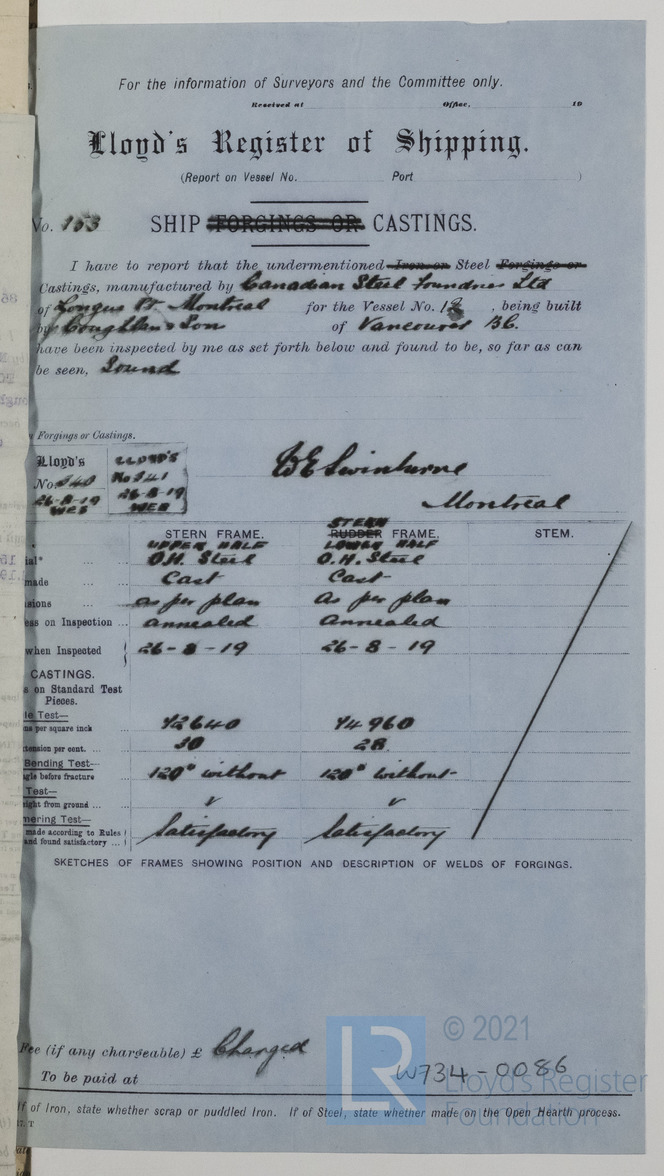 For the information of Surveyors and the Committee only.
Received at Office, 19
Lloyd's Register of Shipping.
(Report on Vessel No. Port )
No. 153 SHIP FORGINGS OR CASTINGS.
I have to report that the undermentioned Iron or Steel Forgings or
Castings, manufactured by Canadian Steel Foundries Ltd
of Longue Pt. Montreal for the Vessel No. 12, being built
by Coughlan & Son of Vancouver B.C.
have been inspected by me as set forth below and found to be, so far as can
be seen, Sound
Forgings or Castings.
Lloyd's LLOYD'S
No. 340 No 341
26-8-19 26-8-19
WES WES
Swinburne
Montreal
STERN FRAME. STERN RUDDER FRAME. STEM.
UPPER HALF LOWER HALF
ial* O.H. Steel O.H. Steel
made Cast Cast
sions as per plan As per plan
ess on Inspection annealed annealed
when Inspected 26-8-19 26-8-19
CASTINGS.
s on Standard Test
Pieces.
le Test—
ns per square inch 72640 74960
tension per cent. 30 28
Bending Test—
gle before fracture 120° without 120° without
Test—
ight from ground ✓ ✓
mering Test—
made according to Rules Satisfactory Satisfactory
and found satisfactory
SKETCHES OF FRAMES SHOWING POSITION AND DESCRIPTION OF WELDS OF FORGINGS.
Fee (if any chargeable) £ Charged
To be paid at
W734-0086
If of Iron, state whether scrap or puddled Iron. If of Steel, state whether made on the Open Hearth process.
LR
© 2021
Lloyd's Register
Foundation